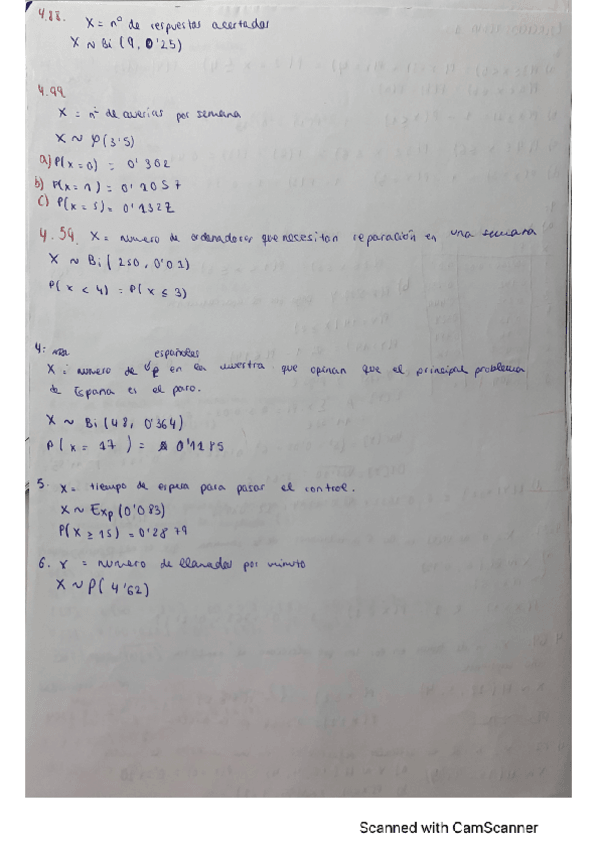 4.88. X = nº de respuestas acertadas
X ~ Bi (9, 0'25)
4.99
X = nº de averias por semana
X ~ P(3'5)
a) P(x=0) = 0'302
b) P(x=1) = 0'1057
c) P(x=5) = 0'1322
4.59. X = numero de ordenadores que necesitan reparación en una semana
X ~ Bi (250, 0'01)
P(x < 4) = P(x ≤ 3)
4:
españoles
X = numero de en la muestra que opinan que el principal problema
de España es el paro.
X ~ Bi (48, 0'364)
P(x = 17) = 0'1185
5. X = tiempo de espera para pasar el control.
X ~ Exp (0'083)
P(x ≥ 15) = 0'2879
6. X = numero de llamadas por minuto
X ~ P( 4'62)
Scanned with CamScanner